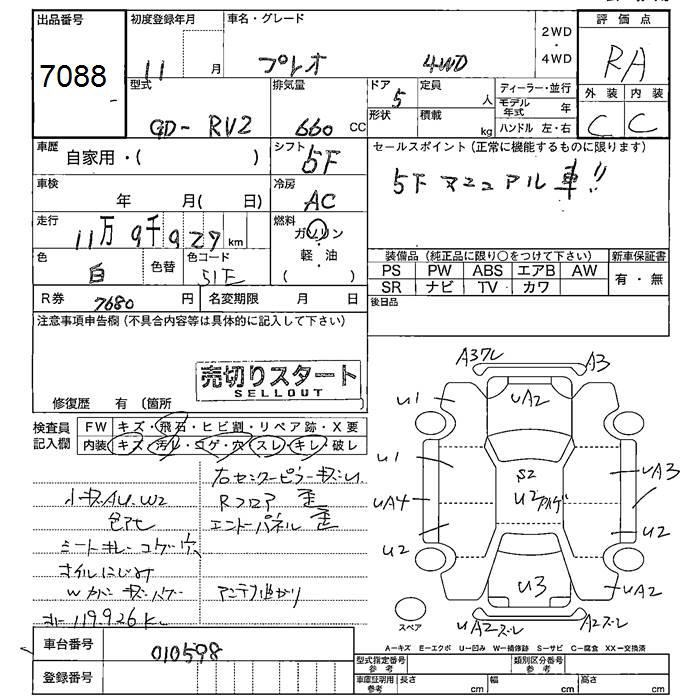 出品番号
7088
初度登録年月
11 月
車名・グレード
プレオ 4WD
2WD
・
4WD
評価点
RA
型式
GD- RV2
排気量
660 cc
ドア
5
定員
人
形状
積載
kg
ディーラー・並行
モデル年式 年
ハンドル 左・右
外装 内装
C C
車歴
自家用・( )
シフト
5F
セールスポイント(正常に機能するものに限ります)
5F マニュアル車!!
車検
年 月( 日)
冷房
AC
走行
11万9千927km
燃料
ガソリン
・
軽・油
( )
色
白
色替
色コード
51E
装備品(純正品に限り○をつけて下さい)
新車保証書
PS PW ABS エアB AW
SR ナビ TV カワ
有・無
R券 7680 円
名変期限 月 日
後日品
注意事項申告欄(不具合内容等は具体的に記入して下さい)
売切りスタート
SELLOUT
修復歴 有(箇所
検査員
記入欄
FW キズ・飛石・ヒビ割・リペア跡・X要
内装 キズ・汚レ・コゲ・穴・スレ・キレ・破レ
右センターピラー
小キズAU.W2
Rフロア 歪
色アセ
エンドパネル 歪
シートキレ コゲ 穴
オイルにじみ
Wカバー
アンテナ曲がり
119.926K
A3ワレ
A3
U1
UA2
U1
U1
S2
UA3
UA4
U2
アルゲ
U2
U2
U3
UA2
スペア
UA2ズレ
A2ズレ
A－キズ E－エクボ U－凹み W－補修跡 S－サビ C－腐食 XX－交換済
車台番号
010598
登録番号
型式指定番号
参考
類別区分番号
参考
車庫証明用
参考
長さ cm
幅 cm
高さ cm